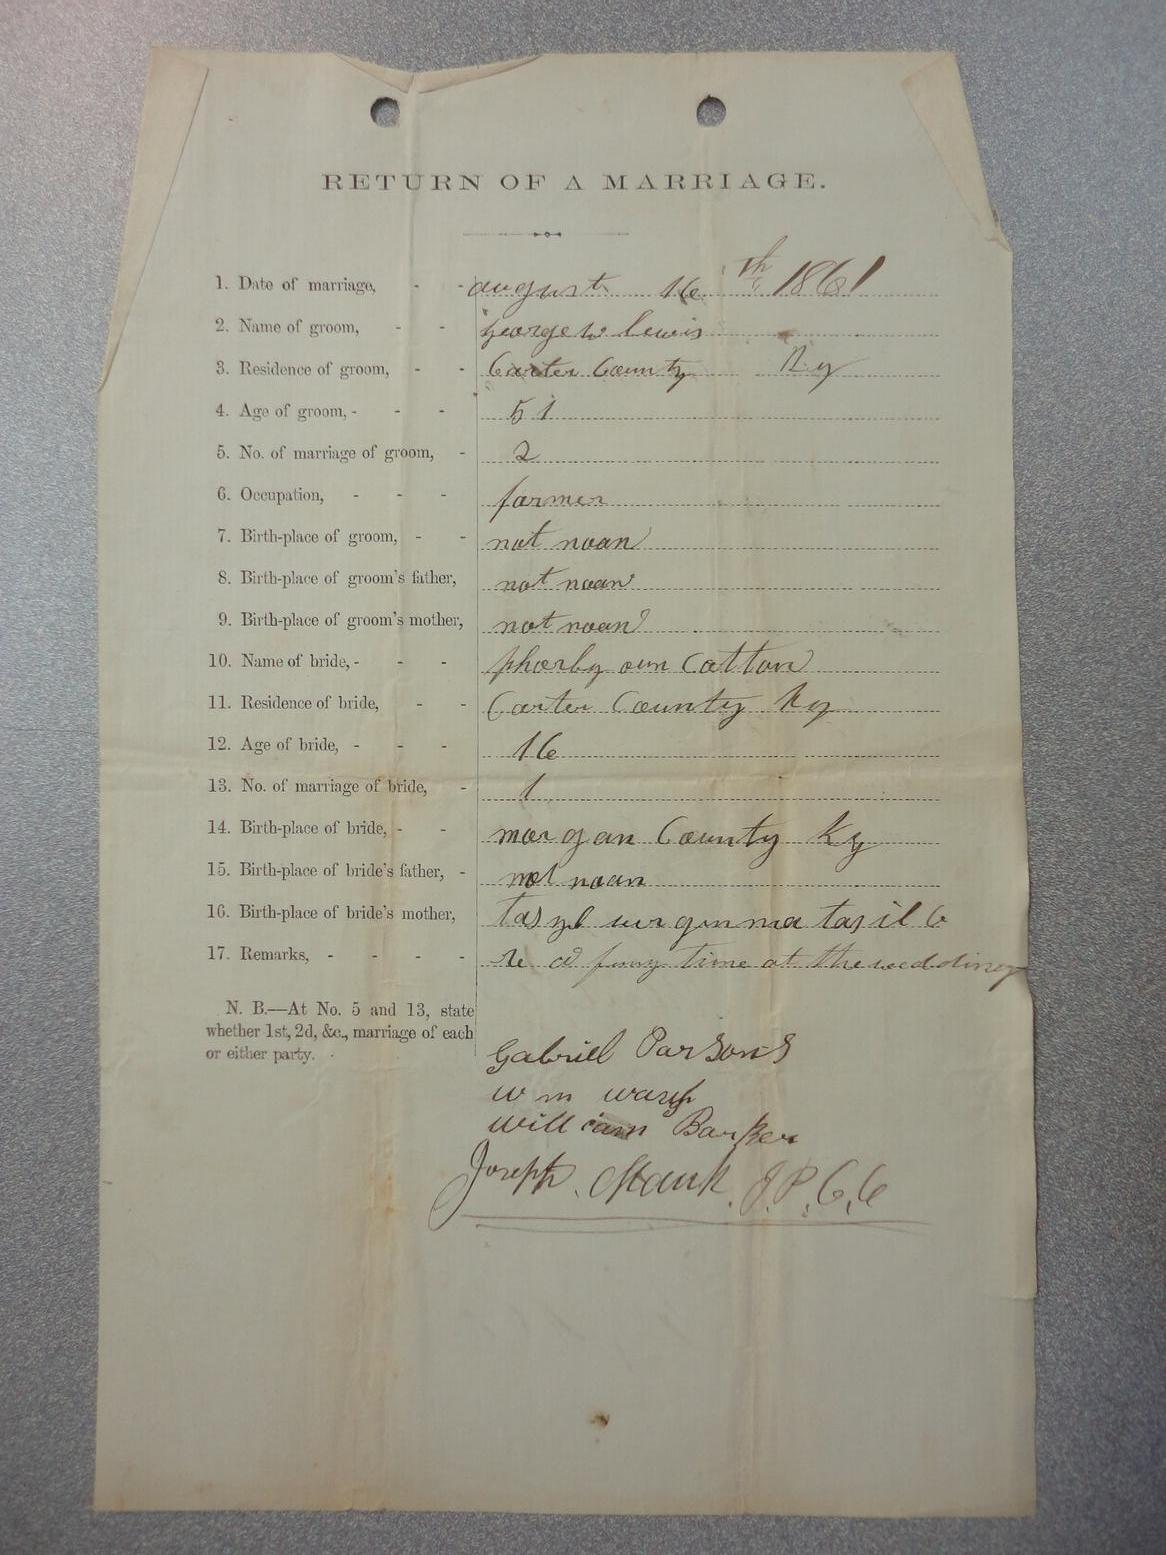 RETURN OF A MARRIAGE.
1. Date of marriage, - - august 16 th 1861
2. Name of groom, - - george w lewis
3. Residence of groom, - - Carter County Ky
4. Age of groom, - - - 51
5. No. of marriage of groom, - 2
6. Occupation, - - - farmer
7. Birth-place of groom, - - not noan
8. Birth-place of groom's father, not noan
9. Birth-place of groom's mother, not noan
10. Name of bride, - - - phoeby ann Catton
11. Residence of bride, - - Carter County Ky
12. Age of bride, - - - 16
13. No. of marriage of bride, - 1
14. Birth-place of bride, - - morgan County Ky
15. Birth-place of bride's father, - not noan
16. Birth-place of bride's mother,
17. Remarks, - - - - a time at the wedding
N. B.—At No. 5 and 13, state
whether 1st, 2d, &c., marriage of each
or either party.
Gabriel Parsons
wm
william Barker
Joseph J.P.C.C